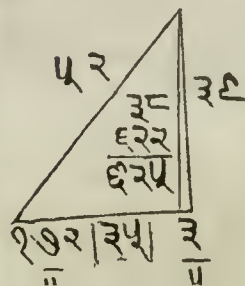 ५२
३८ ३९
६२२
६२५
१७२ |३५| ३
५ ५